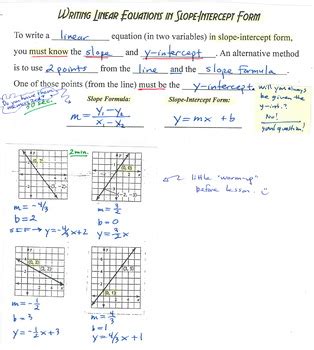 WRITING LINEAR EQUATIONS IN SLOPE-INTERCEPT FORM
To write a linear equation (in two variables) in slope-intercept form,
you must know the slope and y-intercept. An alternative method
is to use 2 points from the line and the slope formula.
One of those points (from the line) must be the y-intercept.
will you always
be given the
y-int.?
No!
good question!
Do you have them
memorized?
Slope Formula:
m = y₁-y₂
x₁-x₂
Slope-Intercept Form:
y = mx + b
2 min.
m = -4/3
b = 2
y = -4/3x + 2
m = 3/2
b = 0
y = 3/2 x
little "warm-up"
before lesson
(0, 3)
(2, 2)
m = -1/2
b = 3
y = -1/2x + 3
(0, 1)
m = 4/3
b = 1
y = 4/3x + 1